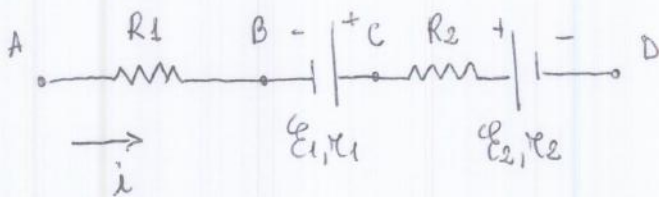 A R1 B - + C R2 + - D
i ℰ1,r1 ℰ2,r2